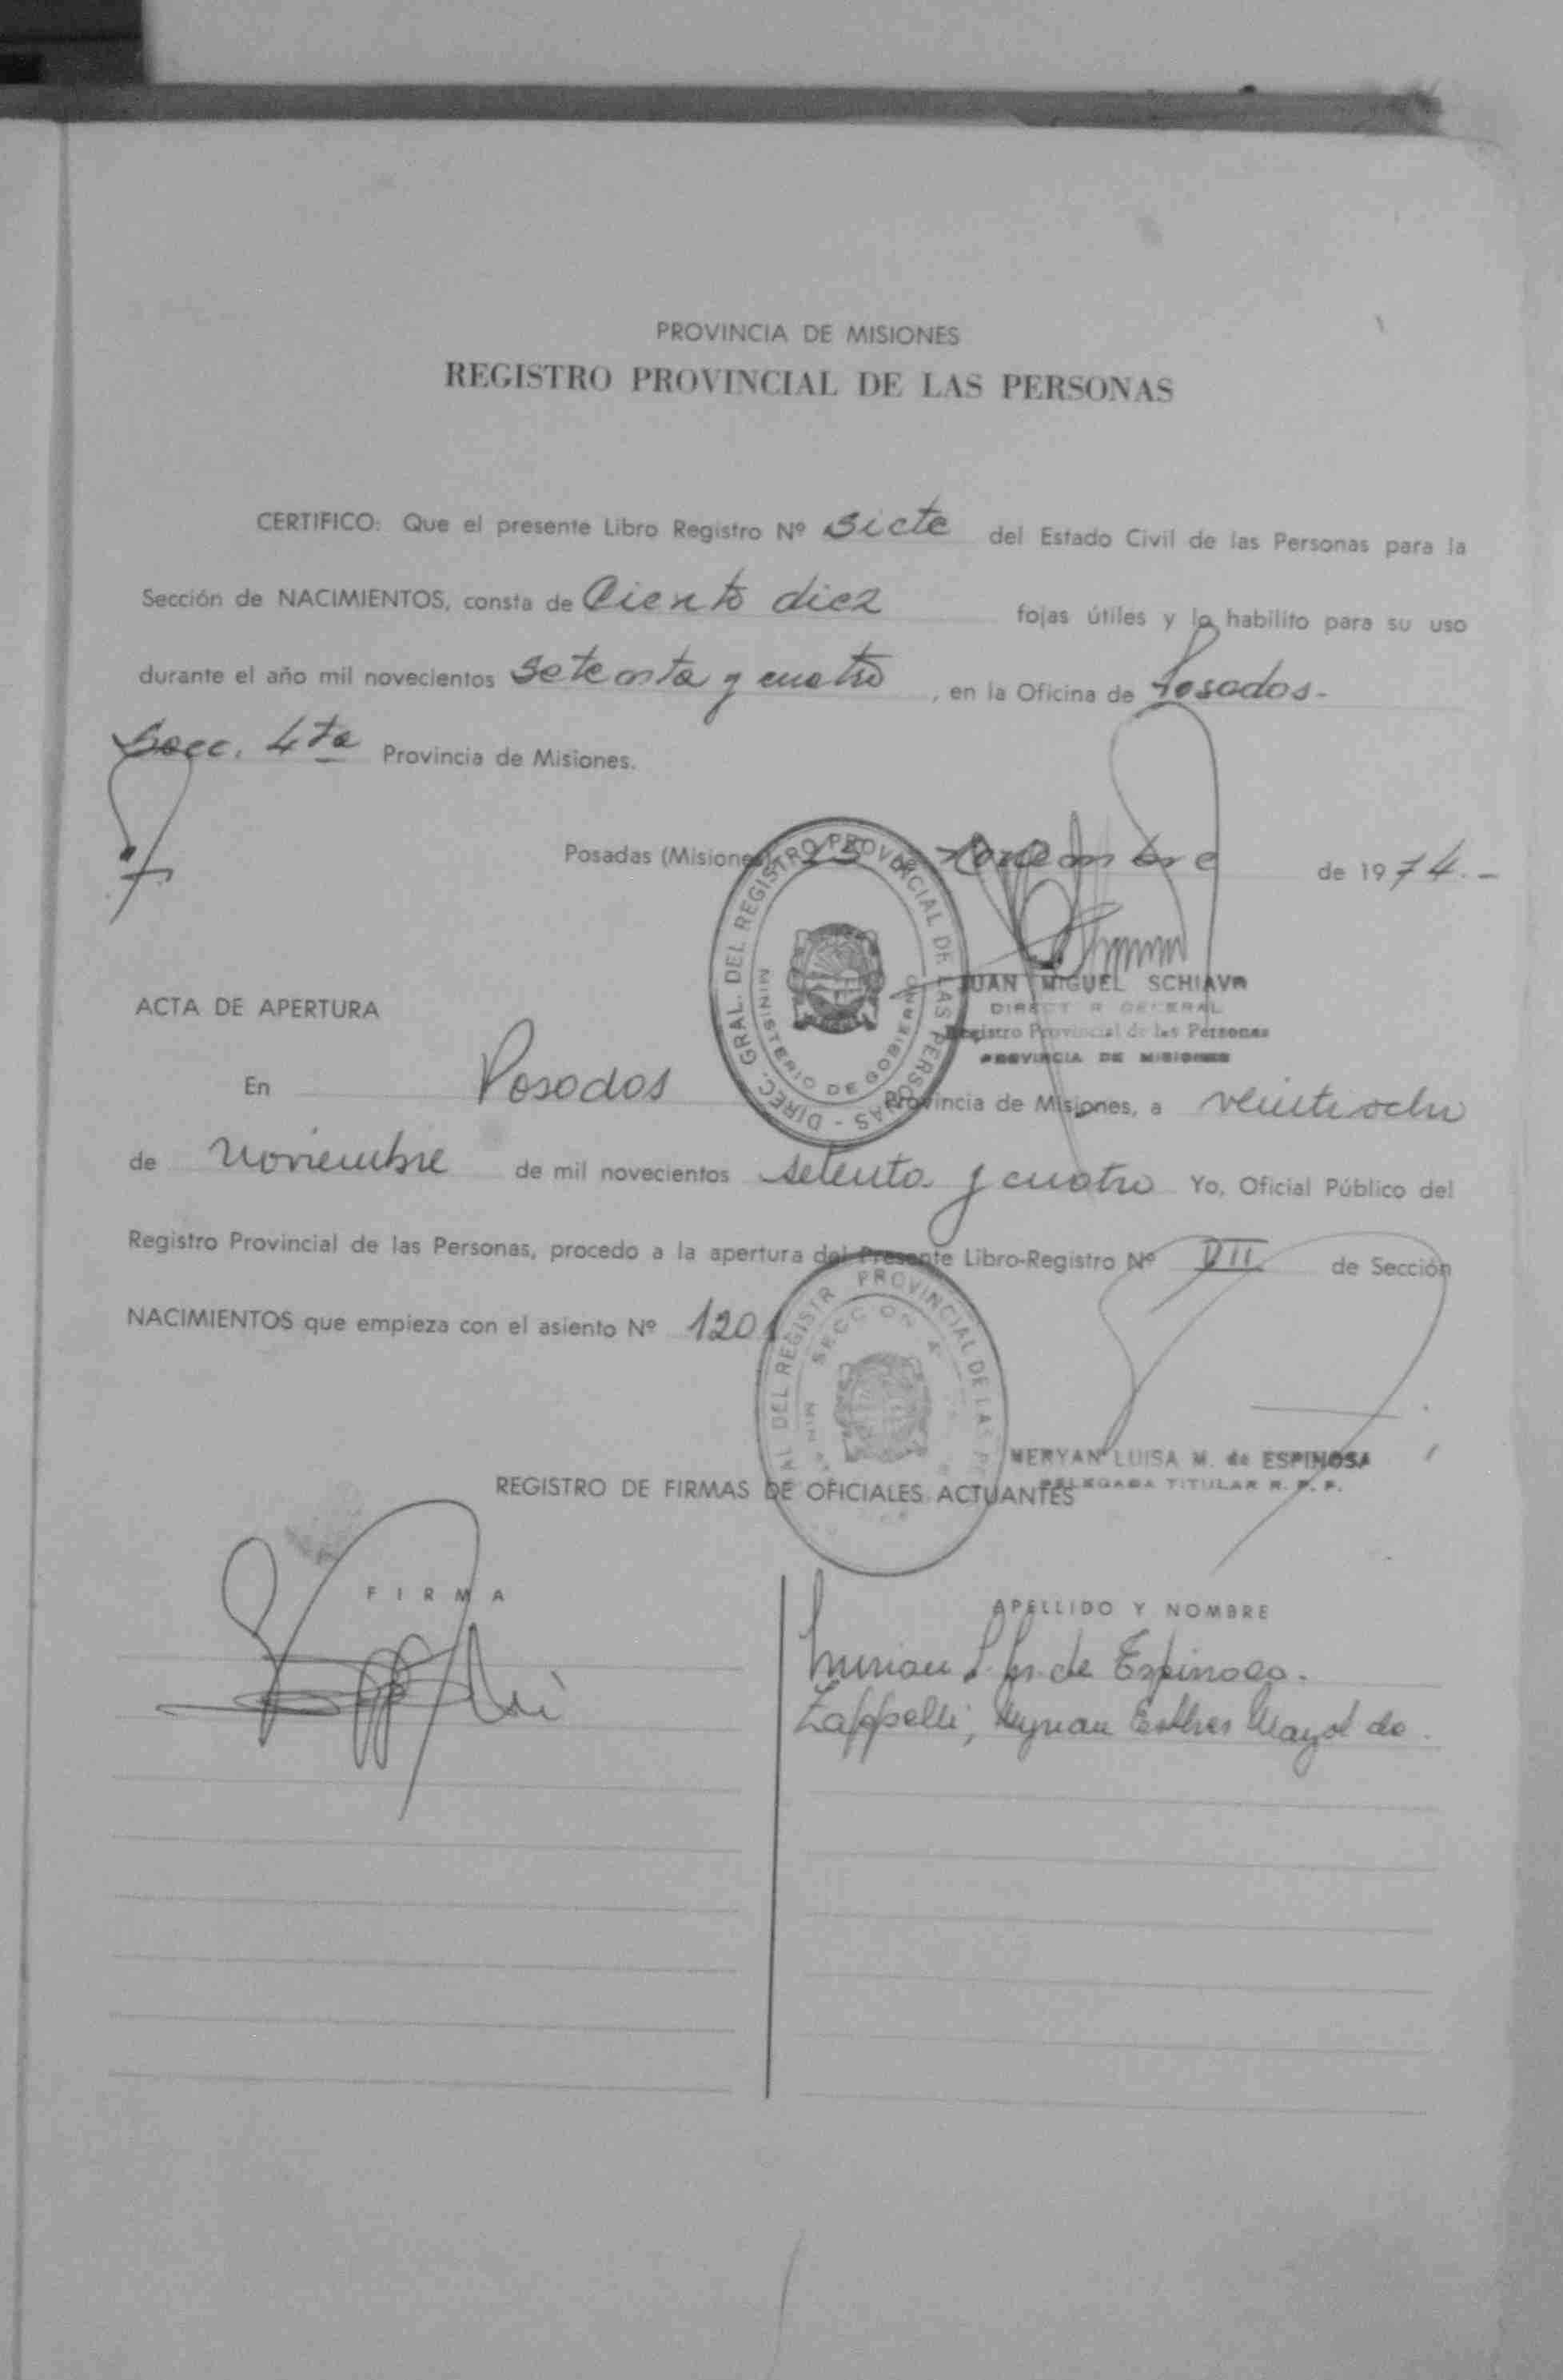 PROVINCIA DE MISIONES
REGISTRO PROVINCIAL DE LAS PERSONAS
CERTIFICO: Que el presente Libro Registro Nº Siete del Estado Civil de las Personas para la
Sección de NACIMIENTOS, consta de Ciento diez fojas útiles y lo habilito para su uso
durante el año mil novecientos Setenta y cuatro, en la Oficina de Posadas-
Secc. 4ta Provincia de Misiones.
Posadas (Misiones), de Noviembre de 1974.-
DIREC. GRAL. DEL REGISTRO PROVINCIAL DE LAS PERSONAS -
MINISTERIO DE GOBIERNO
JUAN MIGUEL SCHIAVO
DIRECTOR GENERAL
Registro Provincial de las Personas
PROVINCIA DE MISIONES
ACTA DE APERTURA
En Posadas Provincia de Misiones, a veintiocho
de noviembre de mil novecientos setenta y cuatro Yo, Oficial Público del
Registro Provincial de las Personas, procedo a la apertura del Presente Libro-Registro Nº VII de Sección
NACIMIENTOS que empieza con el asiento Nº 1201
DEL REGISTR PROVINCIAL DE LAS
SECC
MERYAN LUISA M. de ESPINOSA
DELEGADA TITULAR R. P. P.
REGISTRO DE FIRMAS DE OFICIALES ACTUANTES
FIRMA
APELLIDO Y NOMBRE
L. M. de Espinosa.
Zappelli, Myrian Esther Mayol de.